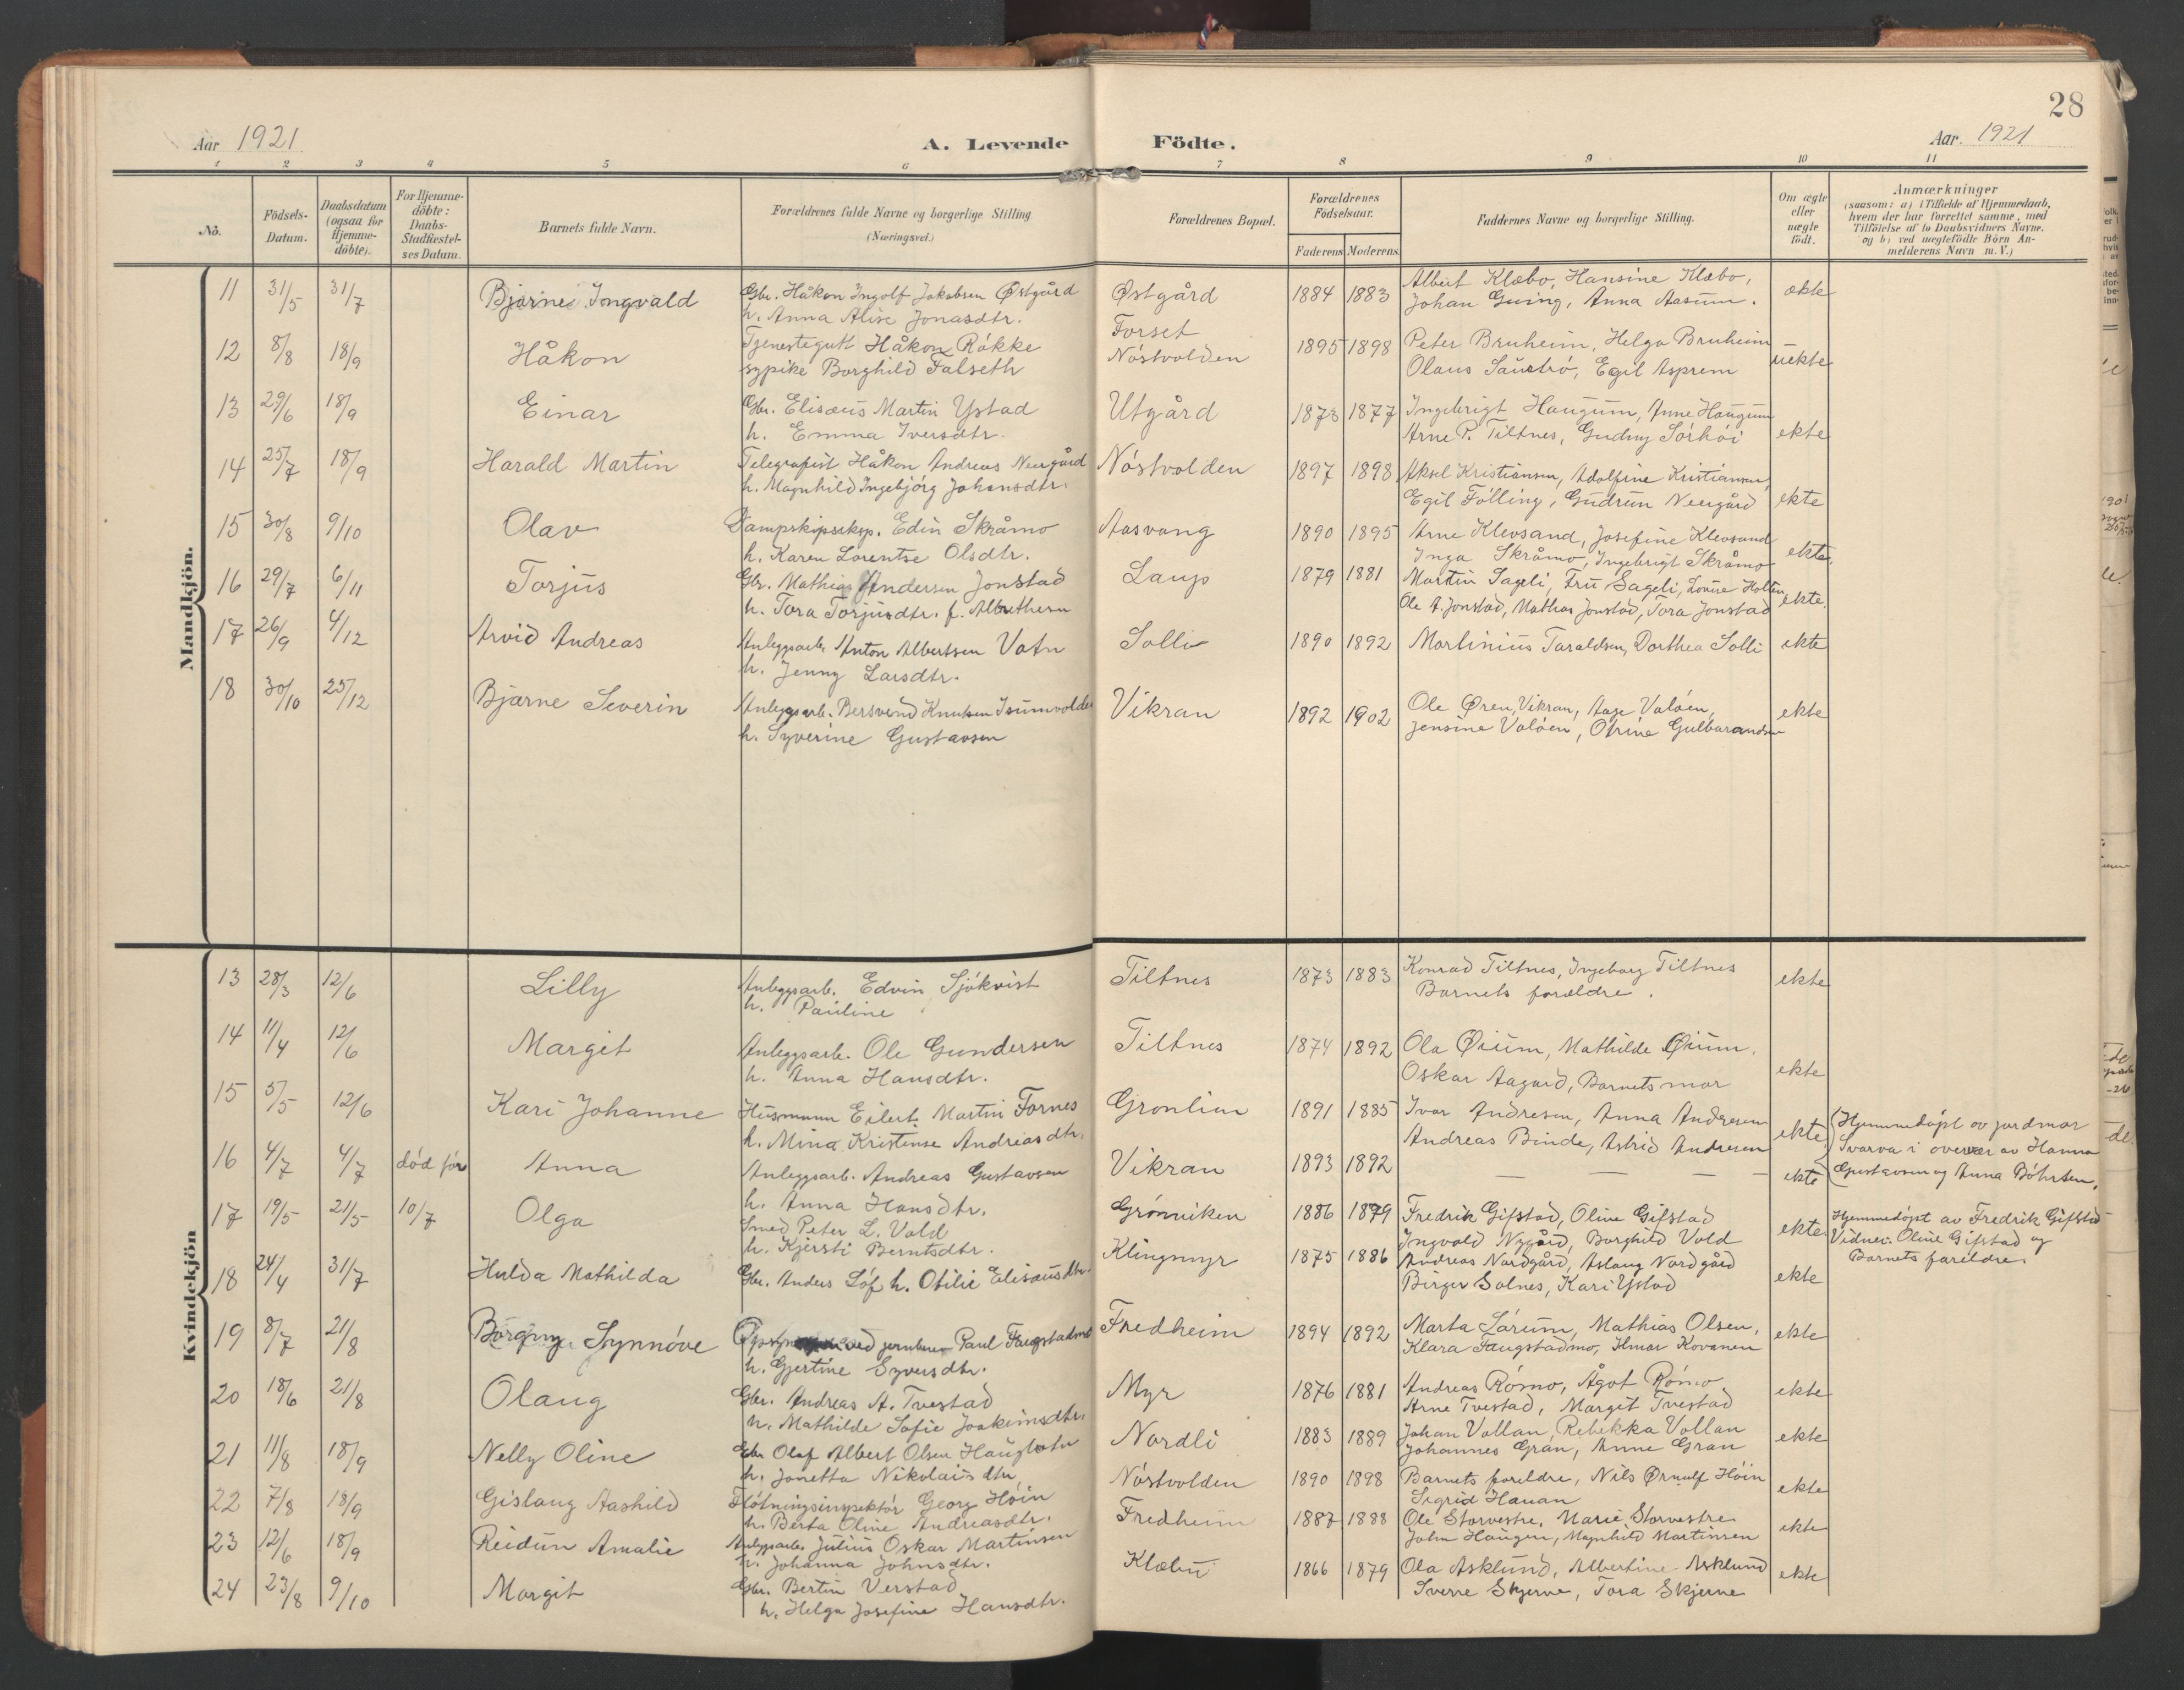 28
Aar 1921 A. Levende Födte. Aar. 1921
1 2 3 4 5 6 7 8 9 10 11
No. Födsels-Datum. Daabsdatum (ogsaa for Hjemme-döbte). For Hjemme-döbte: Daabs-Stadfæstel-ses Datum. Barnets fulde Navn. Forældrenes fulde Navne og borgerlige Stilling (Næringsvei.) Forældrenes Bopæl. Forældrenes Födselsaar. Faderens Moderens. Faddernes Navne og borgerlige Stilling. Om ægte eller uægte födt. Anmærkninger (saasom: a) i Tilfælde af Hjemmedaab, hvem der har forrettet samme, med Tilföielse af to Daabsvidners Navne. og b) ved uægtefödte Börn An-melderens Navn m. V.)
Mandkjön.
11 31/5 31/7 Bjarne Ingvald Gbr. Håkon Ingolf Jakobsen Østgård Østgård 1884 1883 Albert Klæbo, Hansine Klæbo, ekte
h. Anna Alise Jonasdtr. Johan Gving, Anna Aasum.
12 8/8 18/9 Håkon Tjenestegutt Håkon Røkke Forset 1895 1898 Peter Bruheim, Helga Bruheim uekte
sypike Borghild Falseth Nøstvolden Olaus Saustrø, Egil Asprem
13 29/6 18/9 Einar Gbr. Elisæus Martin Ystad Utgård 1873 1877 Ingebrigt Haugum, Anne Haugum
h. Emma Iversdtr. Arne P. Tiltnes, Gudny Sørhøi ekte
14 25/7 18/9 Harald Martin Telegrafist Håkon Andreas Neergård Nøstvolden 1897 1898 Aksel Kristiansen, Adolfine Kristiansen,
h. Magnhild Ingebjørg Johansdtr. Egil Følling, Gudrun Neergård ekte
15 30/8 9/10 Olav Dampskipseksp. Edin Skråmo Aasvang 1890 1895 Arne Klevsand, Josefine Klevsand
h. Karen Lorentse Olsdtr. Inga Skråmo, Ingebrigt Skråmo ekte.
16 29/7 6/11 Torjus Gbr. Mathias Andersen Jonstad Laugs 1879 1881 Martin Sageli, Fru Sageli, Lovise Holten
h. Tora Torjusdtr. f. Albrethsen Ole A. Jonstad, Mathias Jonstad, Tora Jonstad ekte.
17 26/9 4/12 Arvid Andreas Anleggsarb. Anton Albertsen Vatn Solli 1890 1892 Martinius Taraldsen, Dorthea Solli ekte
h. Jenny Larsdtr.
18 30/10 25/12 Bjarne Severin Anleggsarb. Bersvend Knutsen Isumvolden Vikran 1892 1902 Ole Øren, Vikran, Aage Valøen, ekte
h. Syverine Gustavsen Jensine Valøen, Otrine Gulbrandsen
Kvindekjön
13 28/3 12/6 Lilly Anleggsarb. Edvin Sjøkvist Tiltnes 1873 1883 Konrad Tiltnes, Ingeborg Tiltnes ekte
h. Pauline Barnets forældre.
14 11/4 12/6 Margit Anleggsarb. Ole Gundersen Tiltnes 1874 1892 Ola Øium, Mathilde Øium.
h. Anna Hansdtr. Oskar Aagard, Barnets mor ekte
15 5/5 12/6 Kari Johanne Husmann Eilert Martin Fornes Grønlien 1891 1885 Ivar Andresen, Anna Andresen ekte
h. Mina Kristense Andreasdtr. Andreas Binde, Astrid Andresen
16 4/7 4/7 død før Anna Anleggsarb. Andreas Gustavsen Vikran 1893 1892 — — ekte Hjemmedøpt av jordmor
h. Anna Hansdtr. Svarva i overvær av Hanna
Gustavsen og Anna Böhrtsen.
17 19/5 21/5 10/7 Olga Smed Peter L. Vold Grønviken 1886 1879 Fredrik Gifstad, Oline Gifstad ekte. Hjemmedøpt av Fredrik Gifstad
h. Kjersti Berntsdtr. Ingvald Nygård, Borghild Vold Vidner: Oline Gifstad og
Barnets foreldre.
18 24/4 31/7 Hulda Mathilda Gbr. Anders Løf h. Otilie Elisæusdtr. Klingmyr 1875 1886 Andreas Nordgård, Aslaug Nordgård
Birger Solnes, Kari Ystad ekte
19 8/7 21/8 Borgny Synnøve ved jernbanen Paul Faugstadmo Fredheim 1894 1892 Marta Sørum, Mathias Olsen, ekte
h. Gjertine Syversdtr. Klara Faugstadmo, Hmar Kovanen
20 18/6 21/8 Olaug Gbr. Andreas A. Tvestad Myr 1876 1881 Andreas Rømo, Ågot Rømo ekte
h. Mathilde Sofie Joakimsdtr. Arne Tvestad, Margit Tvestad
21 11/8 18/9 Nelly Oline Gbr Olaf Albert Olsen Haugtvatn Nordli 1883 1889 Johan Vollan, Rebekka Vollan ekte
h. Jonetta Nikolaisdtr. Johannes Gran, Anne Gran
22 7/8 18/9 Gislaug Aashild Fløtningsinspektør Georg Høin Nøstvolden 1890 1898 Barnets foreldre, Nils Ørnulf Høin ekte
h. Berta Oline Andreasdtr. Sigrid Hauan
23 12/6 18/9 Reidun Amalie Anleggsarb. Julius Oskar Martinsen Fredheim 1887 1888 Ole Storvestre, Marie Storvestre ekte
h. Johanna Johnsdtr. John Haugen, Magnhild Martinsen
24 23/8 9/10 Margit Gbr. Bertin Verstad Klæbu 1866 1879 Ola Asklund, Albertine Asklund ekte
h. Helga Josefine Hansdtr. Sverre Skjerve, Tora Skjerve